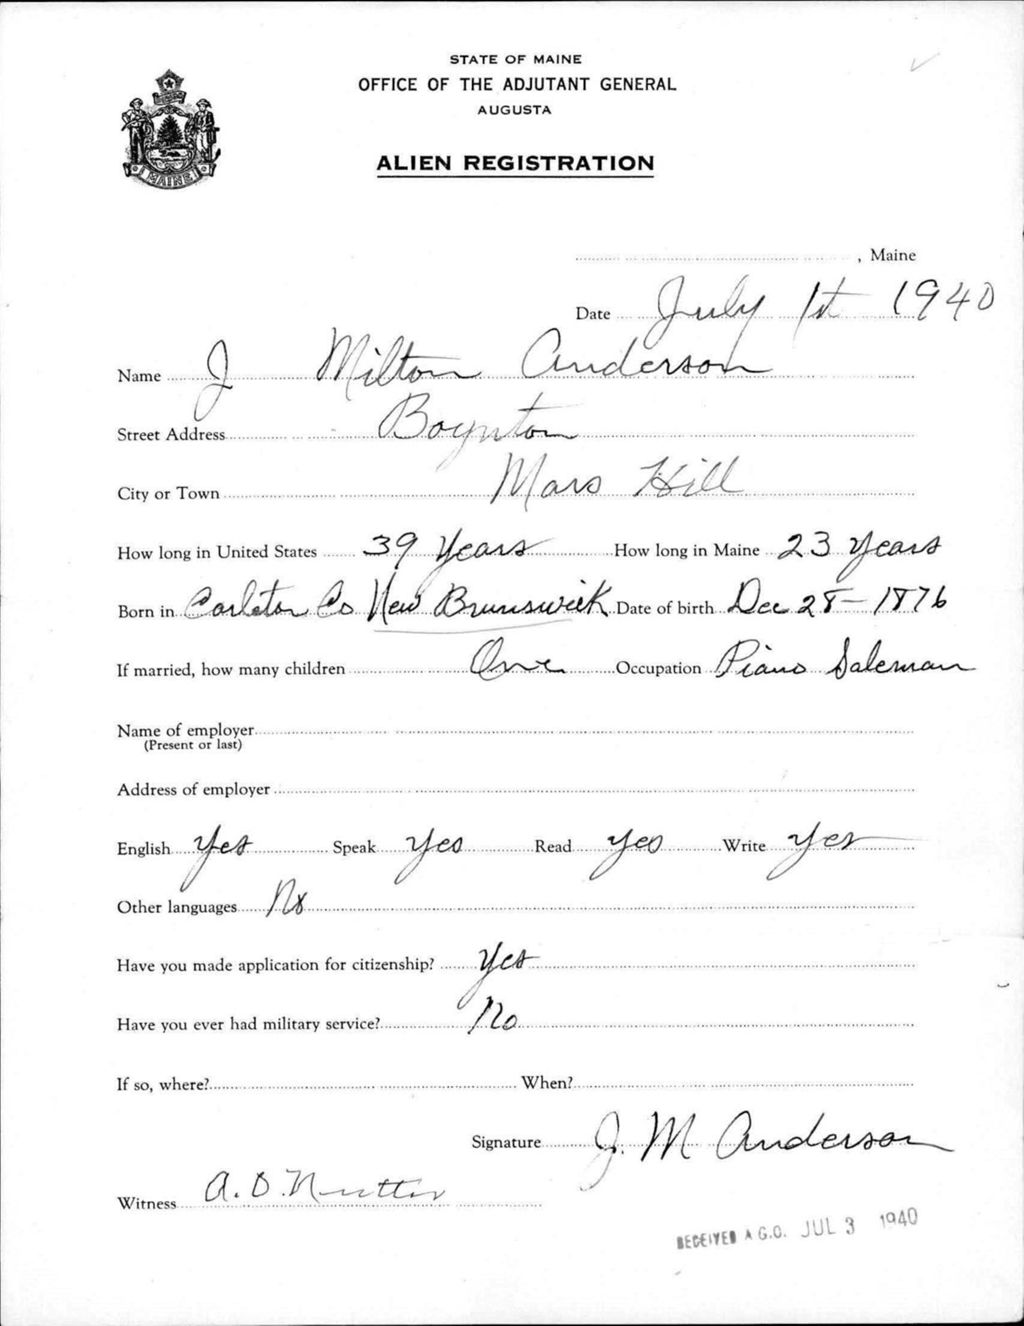 STATE OF MAINE
OFFICE OF THE ADJUTANT GENERAL
AUGUSTA
ALIEN REGISTRATION
MAINE
, Maine
Date July 1st 1940
Name J Milton Anderson
Street Address Boynton
City or Town Mars Hill
How long in United States 39 Years How long in Maine 23 years
Born in Carleton Co New Brunswick Date of birth Dec 28 - 1876
If married, how many children One Occupation Piano Saleman
Name of employer
(Present or last)
Address of employer
English Yes Speak Yes Read Yes Write Yes
Other languages No
Have you made application for citizenship? Yes
Have you ever had military service? No
If so, where? When?
Signature J. M Anderson
Witness A. D. Nutter
RECEIVED A.G.O. JUL 3 1940